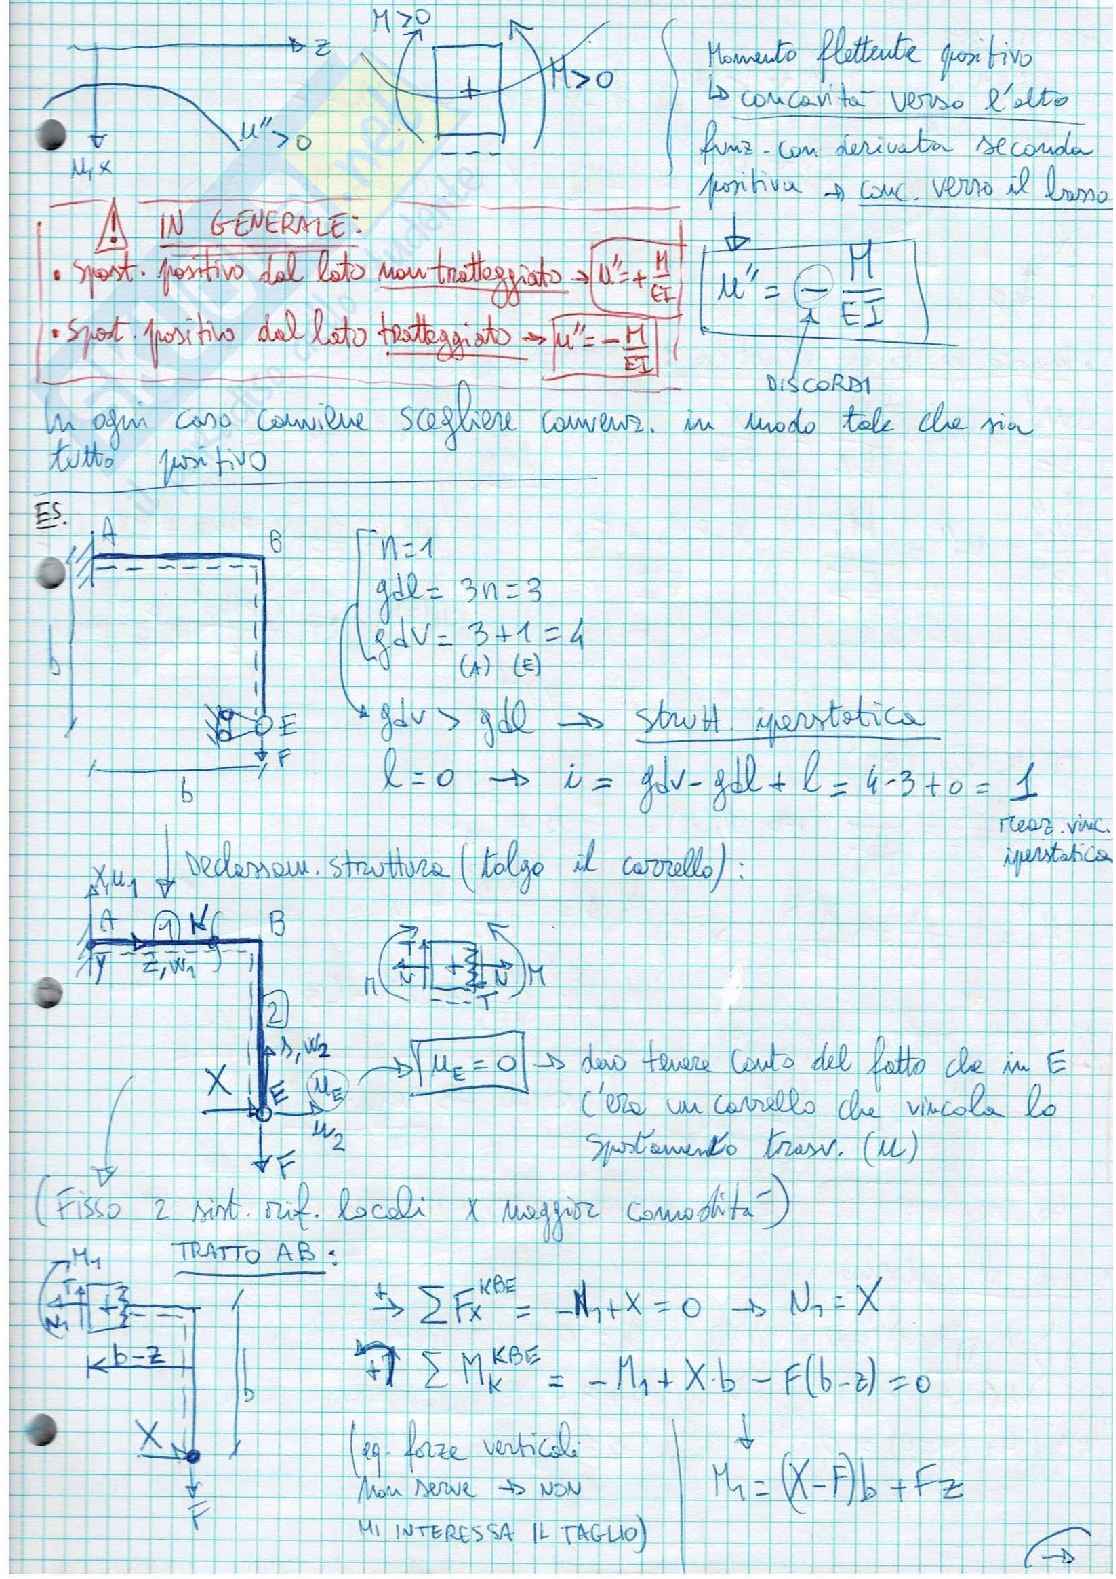 z
u,x
u''>0
M>0
+
M>0
Momento flettente positivo
↳ concavità verso l'alto
funz. con derivata seconda
positiva → conc. verso il basso
u'' = - M/EI
DISCORDI
IN GENERALE:
• Spost. positivo dal lato non tratteggiato → u''=+M/EI
• Spost. positivo dal lato tratteggiato → u''=-M/EI
In ogni caso conviene scegliere convenz. in modo tale che sia
tutto positivo
ES.
A
B
b
E
F
b
n=1
gdl = 3n=3
gdv = 3+1=4
(A) (E)
gdv > gdl → strutt. iperstatica
l=0 → i = gdv-gdl+l = 4-3+0 = 1
reaz. vinc.
iperstatica
Declassam. struttura (tolgo il carrello):
x,u1
A
1
B
y
z,w1
2
s,w2
X
E
uE
u2
F
M
T
N
+
N
T
M
uE=0 → devo tenere conto del fatto che in E
c'era un carrello che vincola lo
spostamento trasv. (u)
(Fisso 2 sist. rif. locali x maggior comodità)
TRATTO AB:
M1
T
N1
+
b-z
b
X
F
+→ ΣFx^KBE = -N1+X=0 → N1=X
+ ΣMK^KBE = -M1+X·b-F(b-z)=0
(eq. forze verticali
non serve → NON
MI INTERESSA IL TAGLIO)
M1=(X-F)b+Fz
→